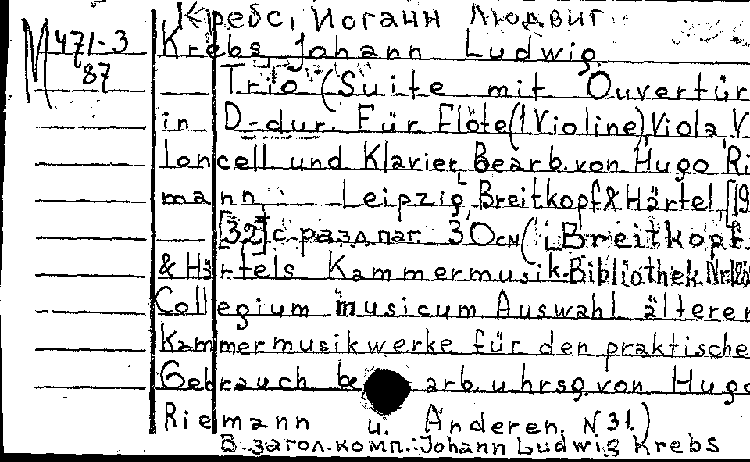 Кребс, Иоганн Людвиг
M 471-3
87
Krebs, Johann Ludwig
Trio (Suite mit Ouvertür
in D-dur. Für Flöte (1 Violine) Viola, V
loncell und Klavier, Bearb. von Hugo Ri
mann. Leipzig, Breitkopf & Härtel, [19
[32] с. разд. паг. 30 см (Breitkopf
& Härtels Kammermusik-Bibliothek
Collegium musicum Auswahl älterer
Kammermusikwerke für den praktische
Gebrauch bearb. u hrsg. von Hugo
Riemann u. Anderen. N 31.)
В загол. комп.: Johann Ludwig Krebs